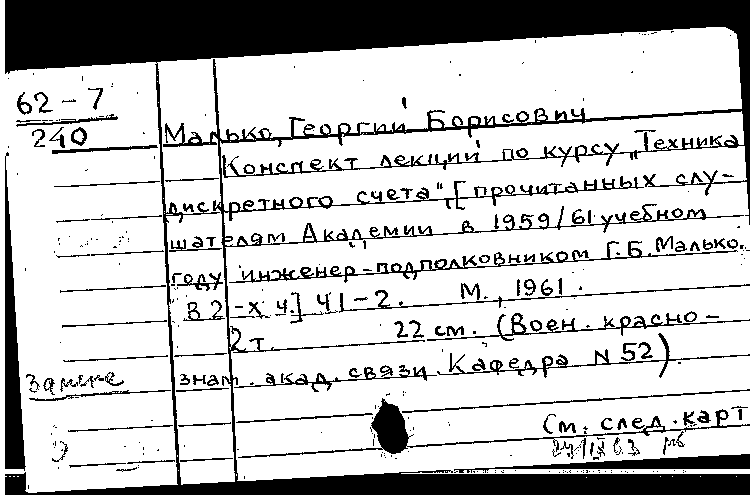 62-7
240
Малько, Георгий Борисович
Конспект лекций по курсу "Техника
дискретного счета", [прочитанных слу-
шателям Академии в 1959/61 учебном
году инженер-подполковником Г.Б. Малько.
В 2-х ч.] Ч 1-2. М., 1961.
2 т. 22 см. (Воен. красно-
знам. акад. связи. Кафедра N 52)
См. след. карт